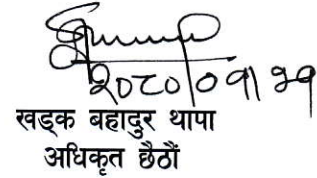 २०८०/०१/२१
खड्क बहादुर थापा
अधिकृत छैठौं